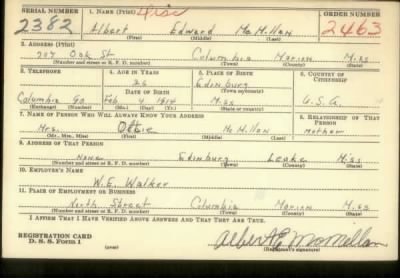 SERIAL NUMBER 1. NAME (Print) ORDER NUMBER
2382 Albert Edward McMillan 2463
(First) (Middle) (Last)
2. ADDRESS (Print)
207 Oak St Columbia Marion Miss
(Number and street or R. F. D. number) (Town) (County) (State)
3. TELEPHONE 4. AGE IN YEARS 5. PLACE OF BIRTH 6. COUNTRY OF CITIZENSHIP
26 Edinburg
DATE OF BIRTH (Town or county)
Columbia 90 Feb 4 1914 Miss U.S.A.
(Exchange) (Number) (Mo.) (Day) (Yr.) (State or country)
7. NAME OF PERSON WHO WILL ALWAYS KNOW YOUR ADDRESS 8. RELATIONSHIP OF THAT PERSON
Mrs. McMillan mother
(Mr., Mrs., Miss) (First) (Middle) (Last)
9. ADDRESS OF THAT PERSON
none Edinburg Leake Miss
(Number and street or R. F. D. number) (Town) (County) (State)
10. EMPLOYER'S NAME
W.E. Walker
11. PLACE OF EMPLOYMENT OR BUSINESS
North Street Columbia Marion Miss
(Number and street or R. F. D. number) (Town) (County) (State)
I AFFIRM THAT I HAVE VERIFIED ABOVE ANSWERS AND THAT THEY ARE TRUE.
REGISTRATION CARD
D. S. S. Form 1 Albert E McMillan
(over) (Registrant's signature)